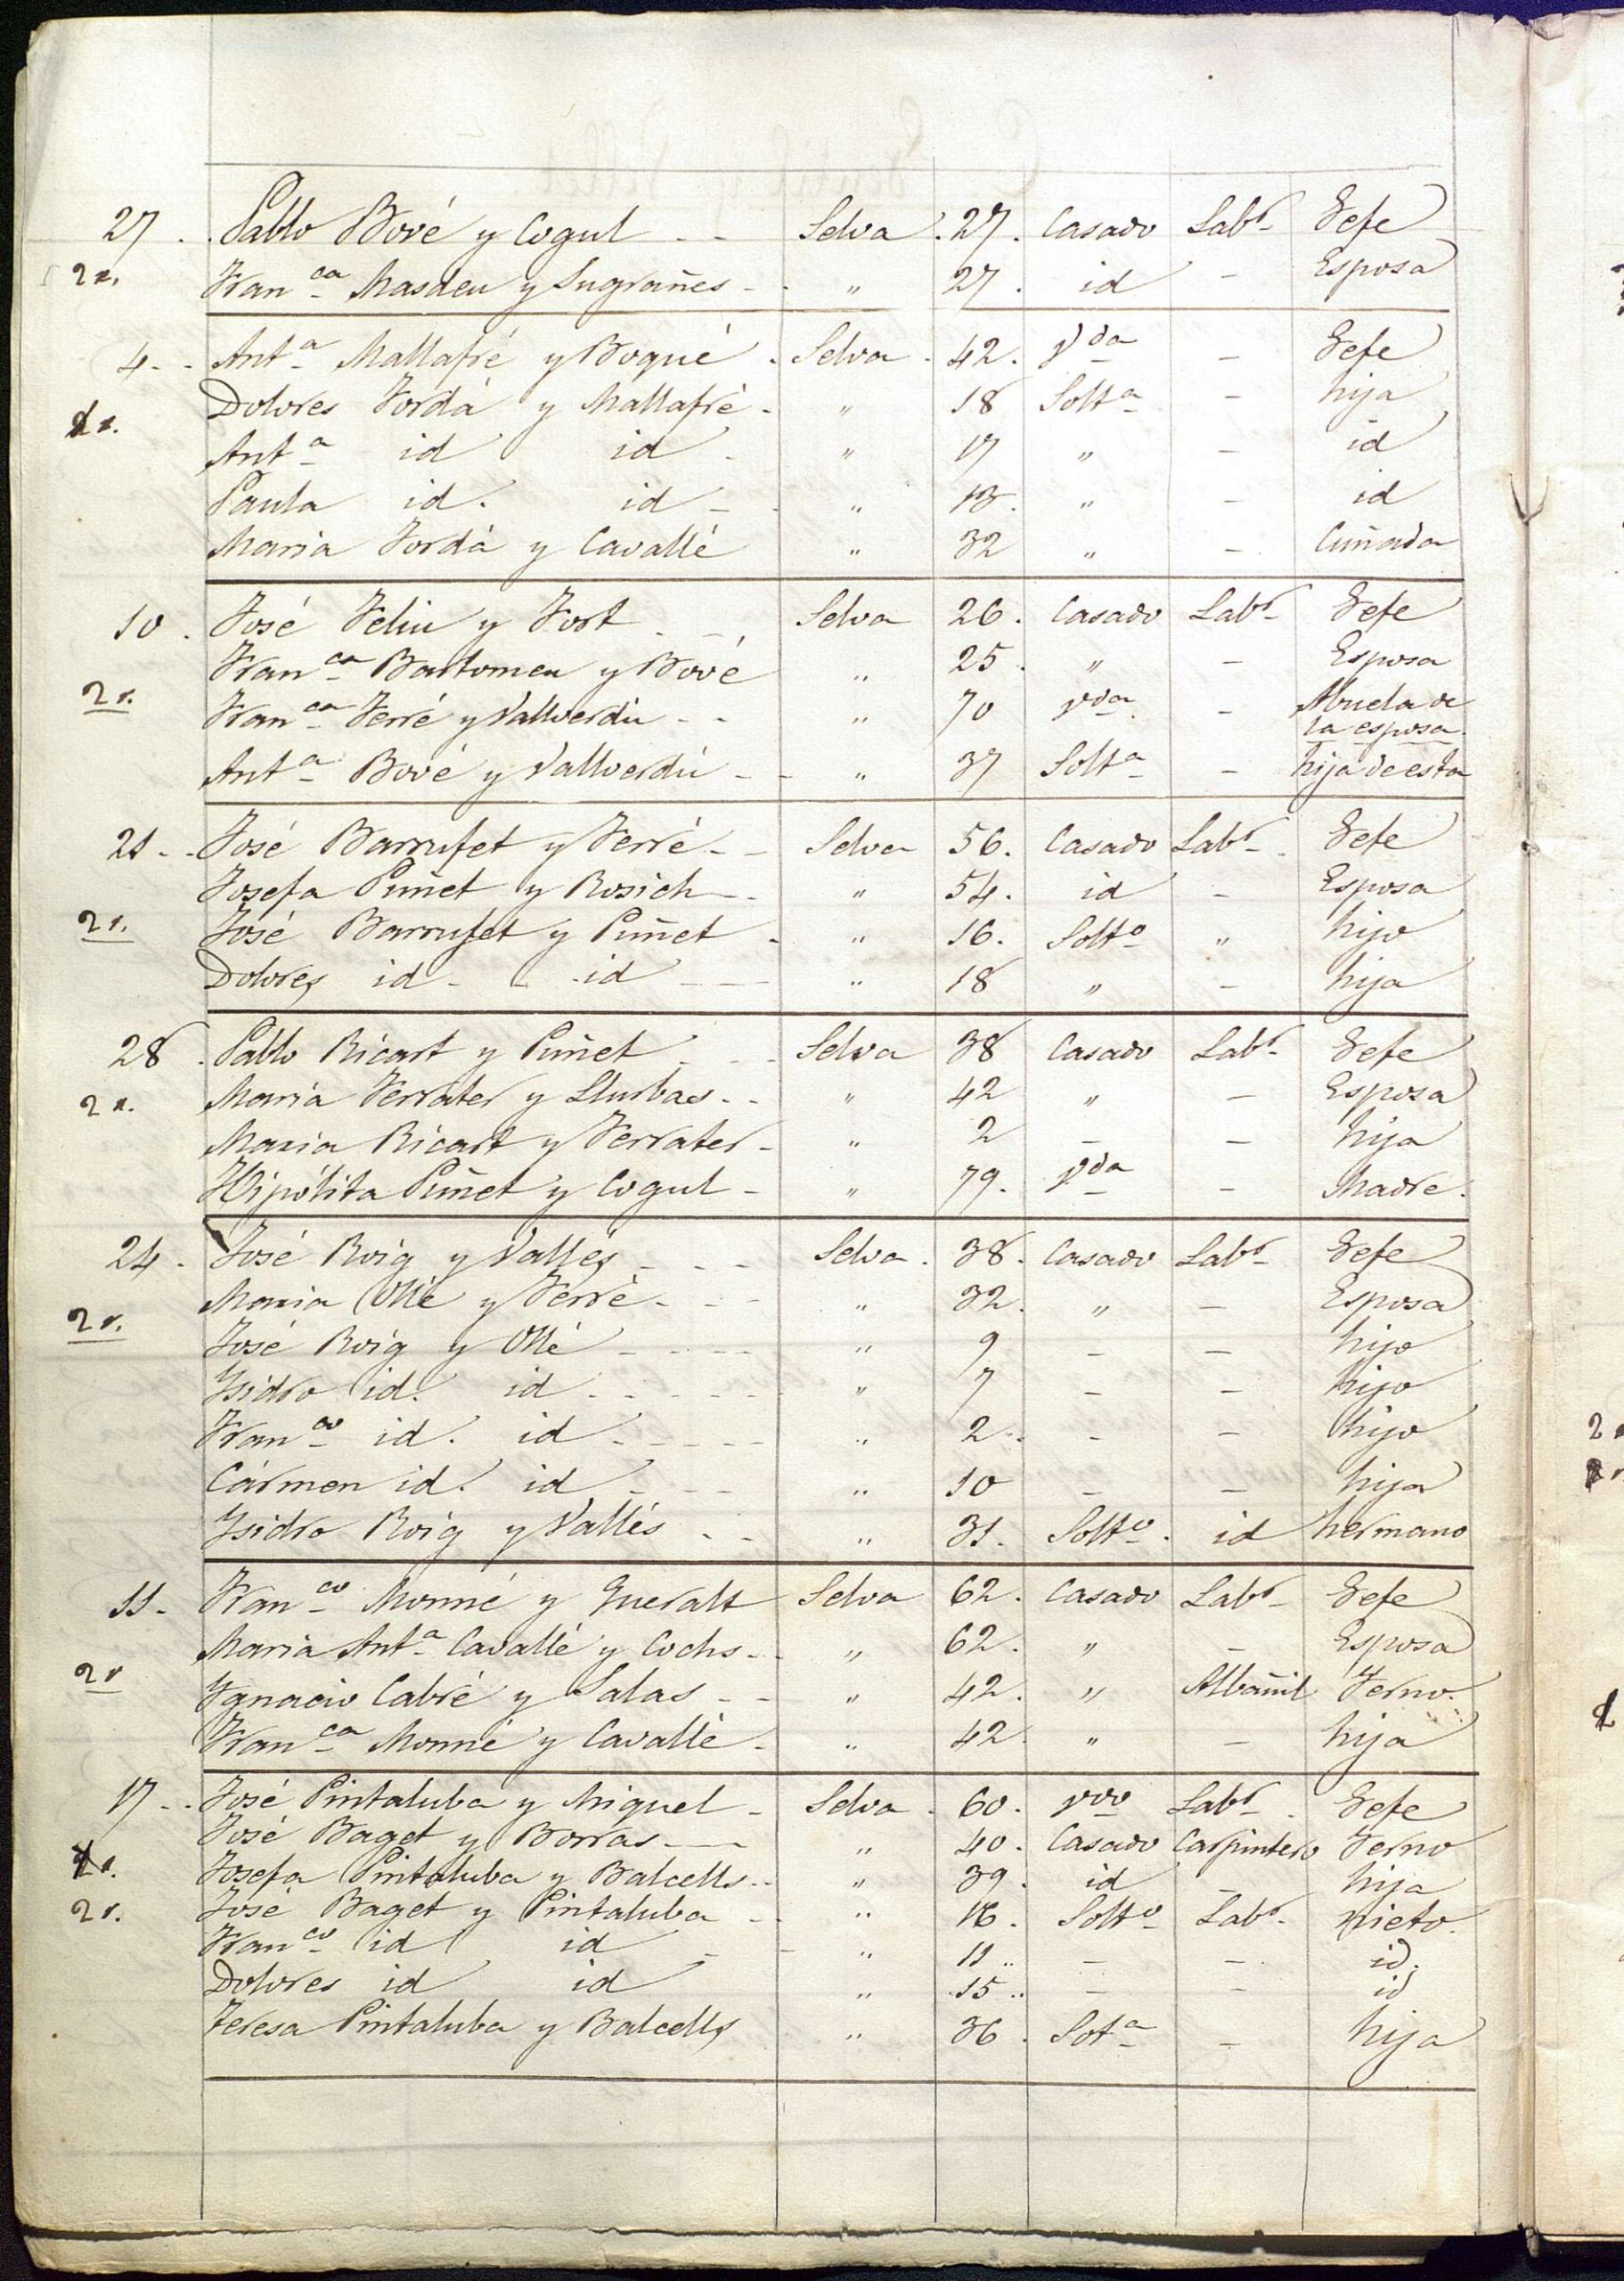 27 . . Pablo Bové y Cogul - - Selva . 27 . Casado Labr Jefe
2 r. Franca Masdeu y Sugrañes - - " 27 . id - Esposa
4 - - Anta Mallafré y Boqué . Selva . 42 . Vda - Jefe
Dolores Jordá y Mallafré - " 18 Solta - hija
r. Anta id id - " 17 " - id
Paula id. id - - " 13 . " - id
Maria Jordá y Cavallé " 32 " - Cuñada
10 . José Feliu y Fort . - - Selva 26 . Casado Labr Jefe
Franca Bartomeu y Bové " 25 . " - Esposa
2 r. Franca Ferré y Vallverdú - - " 70 Vda . - Abuela de
la esposa.
Anta Bové y Vallverdú - - " 37 Solta - hija de esta
21 - - José Barrufet y Ferré - - Selva 56 . Casado Labr - . Jefe
Josefa Puñet y Rosich - . " 54 . id - Esposa
2 r. José Barrufet y Puñet - " 16 . Solto " hijo
Dolores id - - id - - " 18 " - hija
28 . Pablo Ricart y Puñet - - - Selva 38 Casado Labr - Jefe
2 r. Maria Ferrater y Llurbas - - " 42 " - Esposa
Maria Ricart y Ferrater - " 2 - - hija
Hipólita Puñet y Cogul - " 79 . Vda - Madre.
24 . José Roig y Vallés - - - Selva . 38 . Casado Labr - Jefe
Maria Ollé y Ferré - - - " 32 . " - Esposa
2 r. José Roig y Ollé - - - - " 9 - - hijo
Ysidro id. id - - - - - " 7 - - hijo
Franco id. id - - - - " 2 . - - hijo
Cármen id. id - - - " 10 - - hija
Ysidro Roig y Vallés - - " 31 . Solto . id hermano
11 - Franco Monné y Gueralt Selva 62 . Casado Labr - Jefe
Maria Anta Cavallé y Cochs - - " 62 . " - Esposa
2 r Ygnacio Cabré y Salas - - " 42 . " Albañil Yerno.
Franca Monné y Cavallé - " 42 . " - hija
17 - - José Pintaluba y Miguel - Selva . 60 . Vdo Labr - . Jefe
José Baget y Borras - - " 40 . Casado Carpintero Yerno
r. Josefa Pintaluba y Balcells - - " 39 . id - hija
2 r. José Baget y Pintaluba - - " 16 . Solto Labr - nieto.
Franco id id - - " 11 . . - - . id.
Dolores id id " 15 . . - - id
Teresa Pintaluba y Balcells " 36 . Sota - hija